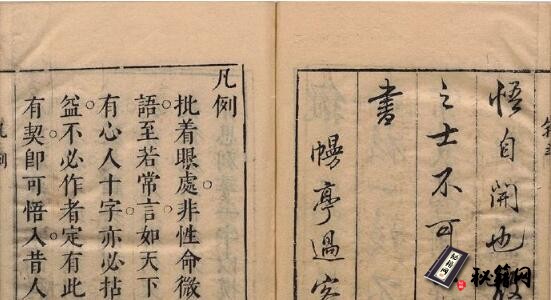 悟自開也
之士不可
書
幔亭過客
凡例
批着眼處非性命微
語至若常言如天下
有心人十字亦必拈
益不必作者定有此
有契卽可悟入昔人
凡例
秘籍网